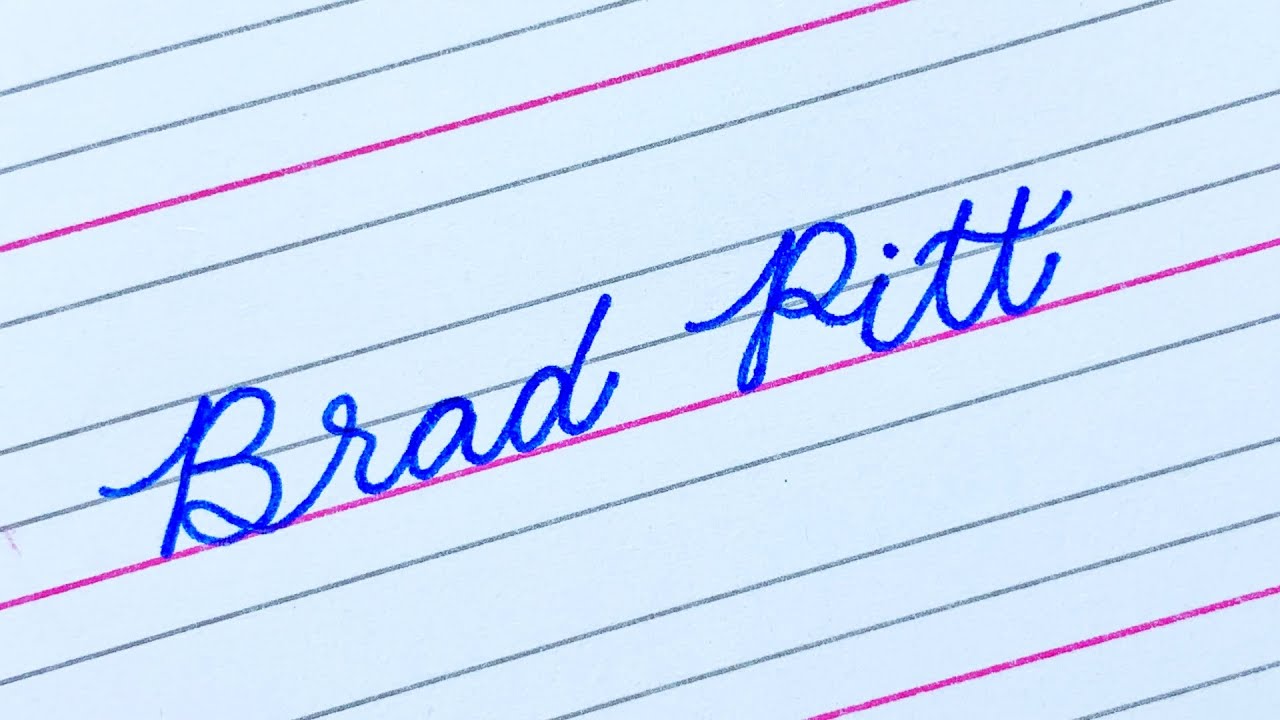 Brad Pitt